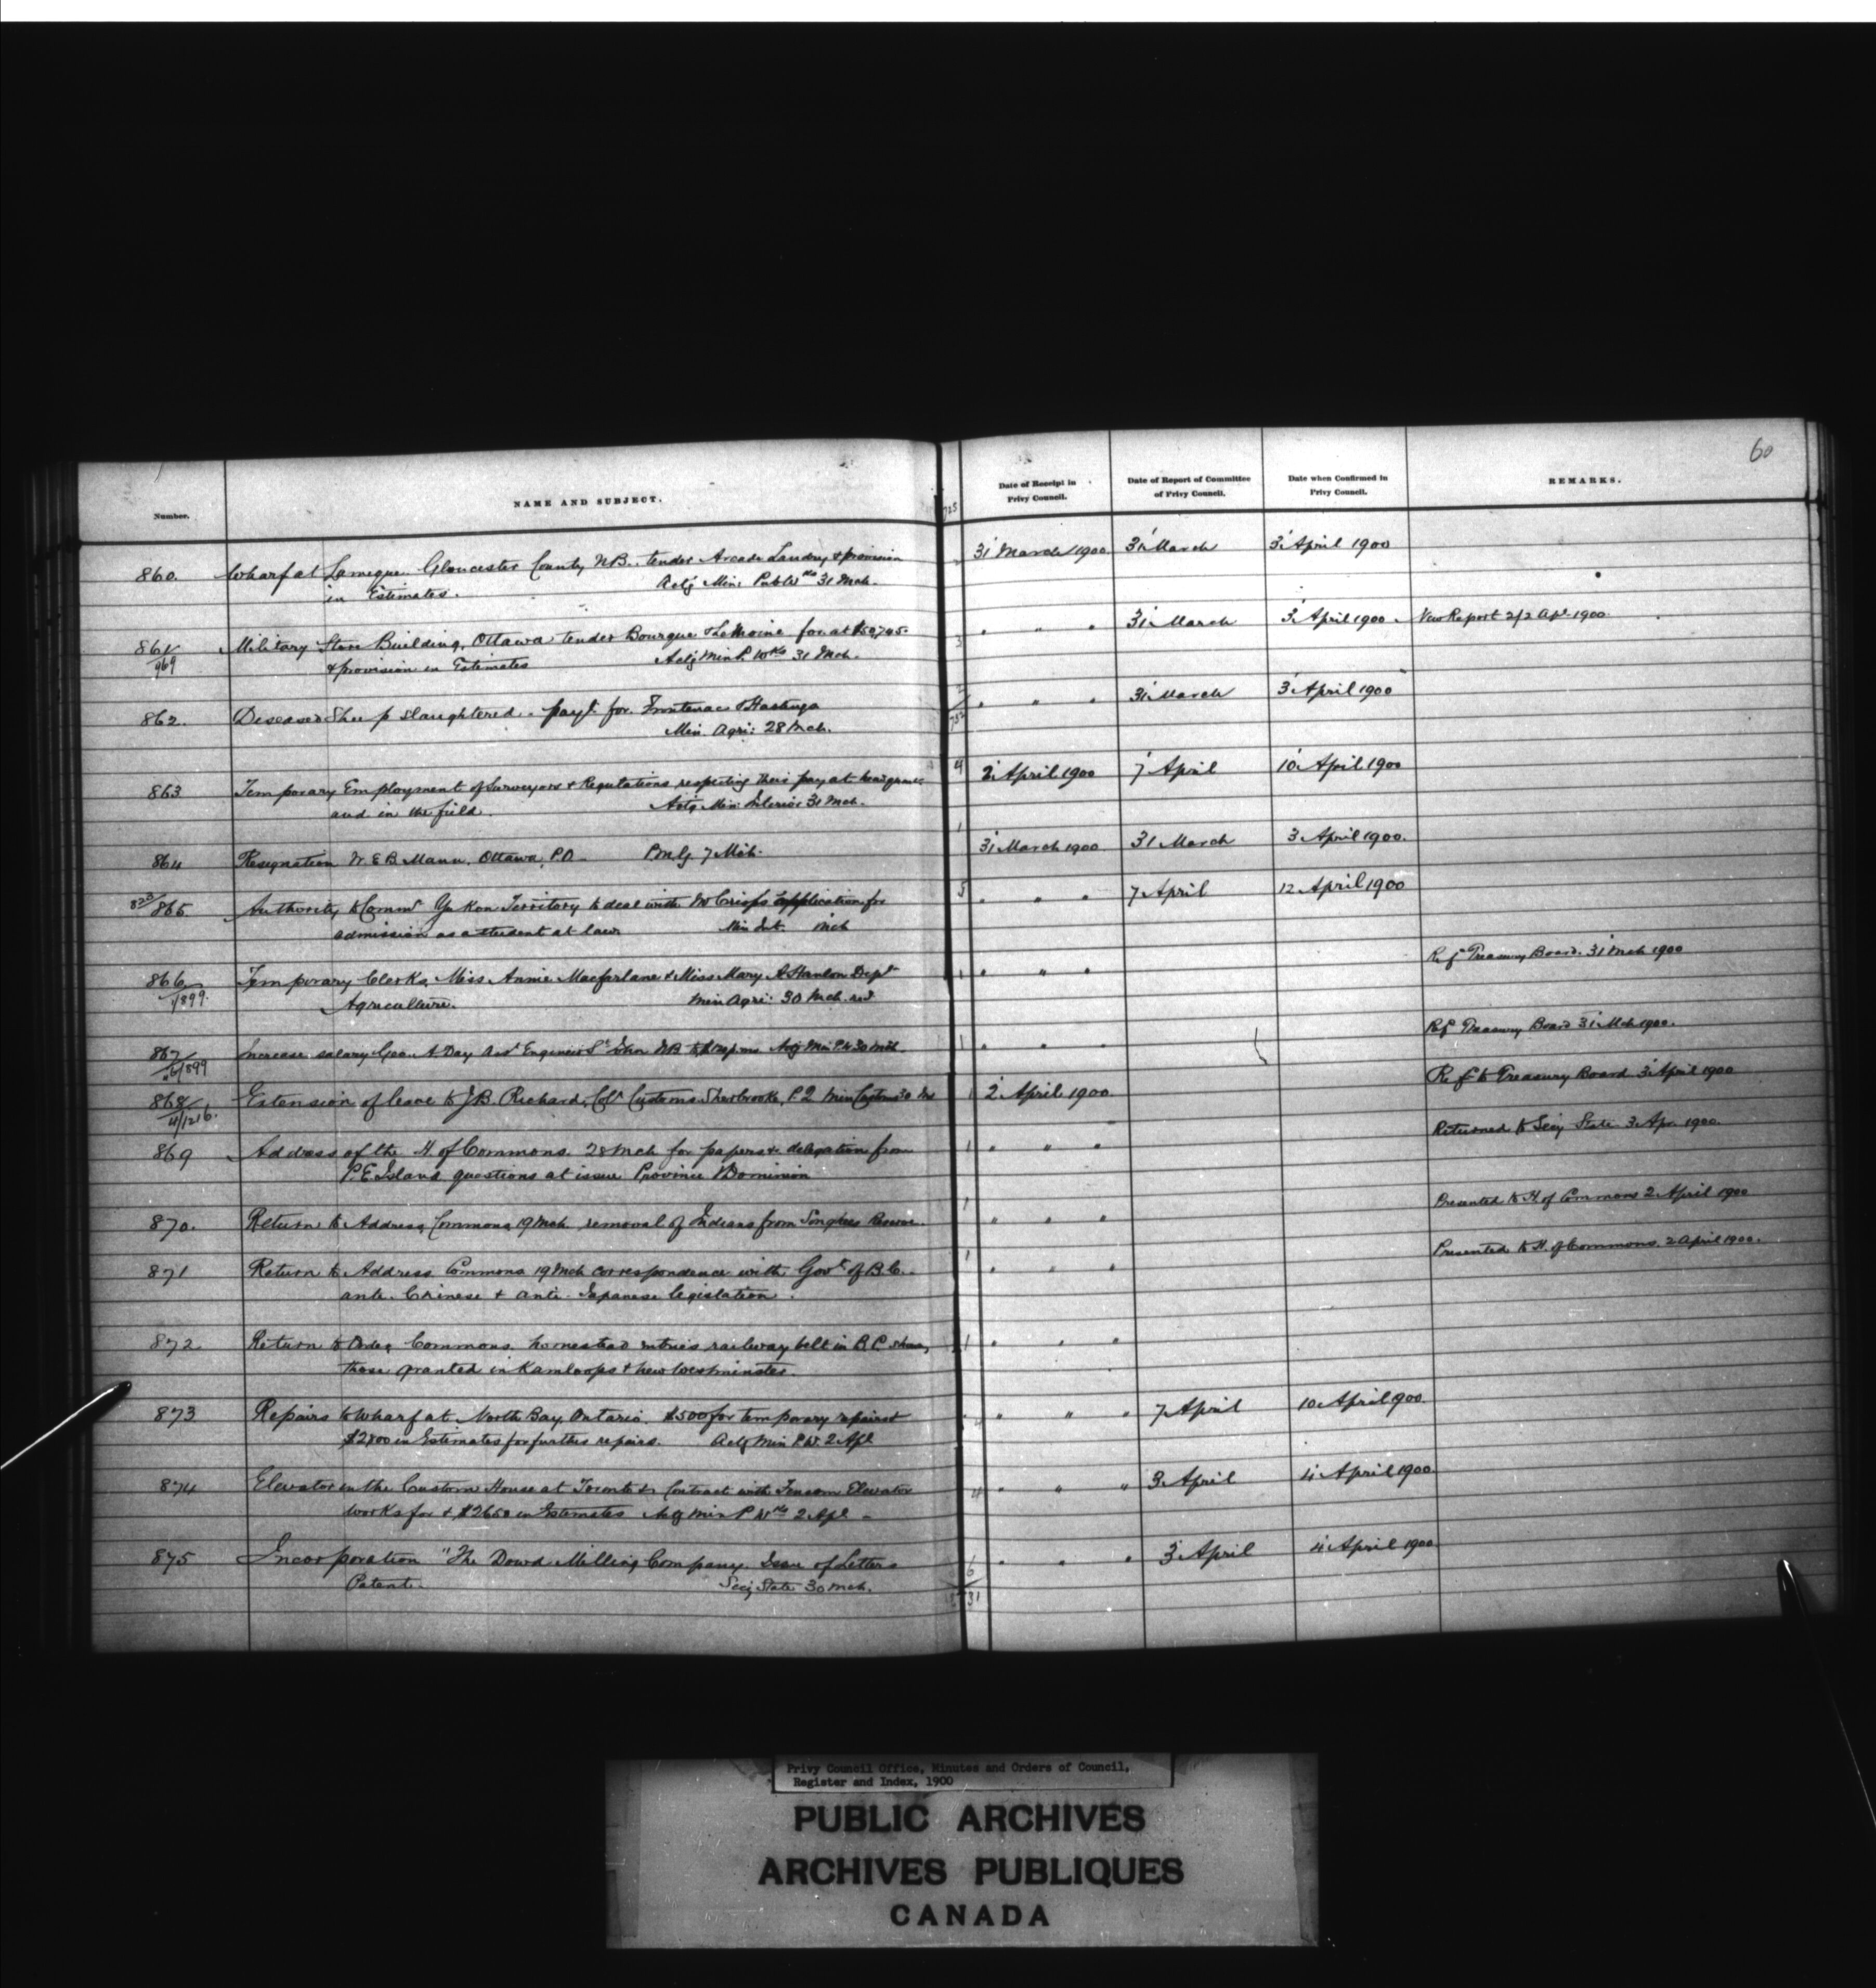 60
Number.
NAME AND SUBJECT.
Date of Receipt in Privy Council.
Date of Report of Committee of Privy Council.
Date when Confirmed in Privy Council.
REMARKS.
860. Wharf at Lameque Gloucester County N.B. tender Arcade Landry & provision 31 March 1900 31 March 3 April 1900
in Estimates. Actg Min: Pub Wks 31 Mch.
861/969 Military Store Building, Ottawa tender Bourque & Lemoine for at " " " 31 March 3 April 1900 New Report 2/2 Apl 1900
& provision in Estimates Actg Min P. Wks 31 Mch.
862. Diseased Sheep slaughtered. payt. for Frontenac & Hastings " " " 31 March 3 April 1900
Min. Agri: 28 Mch.
863 Temporary Employment of Surveyors & Regulations respecting their pay at 2 April 1900 7 April 10 April 1900
and in the field. Actg Min: Interior 31 Mch.
864 Resignation W E B Mann. Ottawa, P.O. P.M.G. 7 Mch. 31 March 1900 31 March 3 April 1900.
865 Authority to Commr Yukon Territory to deal with W Crisps application for " " " 7 April 12 April 1900
admission as a student at law Min Int. Mch
866/1899. Temporary Clerks, Miss Annie Macfarlane & Miss Mary Hanlon Dept " " " Ref Treasury Board. 31 Mch 1900
Agriculture. Min Agri: 30 Mch.
867 Increase salary Geo. A Day Asst Engineer St John NB Actg Min P.W 30 Mch. " " " Ref Treasury Board 31 Mch 1900.
868 Extension of leave to J B. Richard, Collr Customs Sherbrooke, P.Q Min Customs 30 2 April 1900. Ref to Treasury Board 3 April 1900
869 Address of the H of Commons. 28 Mch for papers & delegation from " " " Returned to Secy State 3 Apr. 1900.
P.E. Island questions at issue Province & Dominion
870. Return to Address, Commons 19 Mch removal of Indians from Songhees Reserve. " " " Presented to H. of Commons 2 April 1900
871 Return to Address Commons 19 Mch correspondence with Govt of B.C. " " " Presented to H. of Commons. 2 April 1900.
anti. Chinese & anti-Japanese legislation.
872 Return to Order Commons, homestead entries railway belt in B.C. " " "
those granted in Kamloops & New Westminster.
873 Repairs to Wharf at North Bay, Ontario. $500 for temporary repairs & " " " 7 April 10 April 1900.
in Estimates for further repairs. Actg Min P.W. 2 Apl
874 Elevator in the Custom House at Toronto Contract with Elevator " " " 3 April 4 April 1900.
works for & $2650 in Estimates Actg Min P Wks 2 Apl
875 Incorporation "The Dowd Milling Company. Issue of Letters " " " 3 April 4 April 1900
Patent. Secy State 30 Mch.
Privy Council Office, Minutes and Orders of Council,
Register and Index, 1900
PUBLIC ARCHIVES
ARCHIVES PUBLIQUES
CANADA